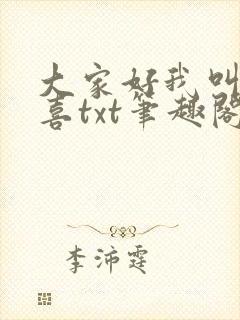 大家好我叫
喜txt笔趣阁
李沛霆